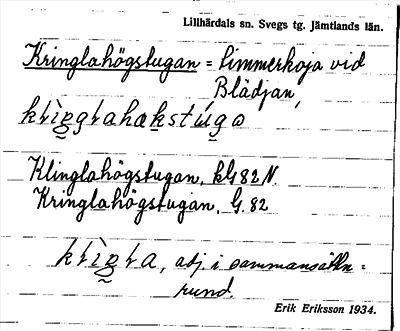 Lillhärdals sn. Svegs tg. Jämtlands län.
Kringlahögstugan = timmerkoja vid
Blädjan,
Klinglahögstugan, klG 82 N.
Kringlahögstugan, G. 82
adj. i sammansättn =
rund.
Erik Eriksson 1934.